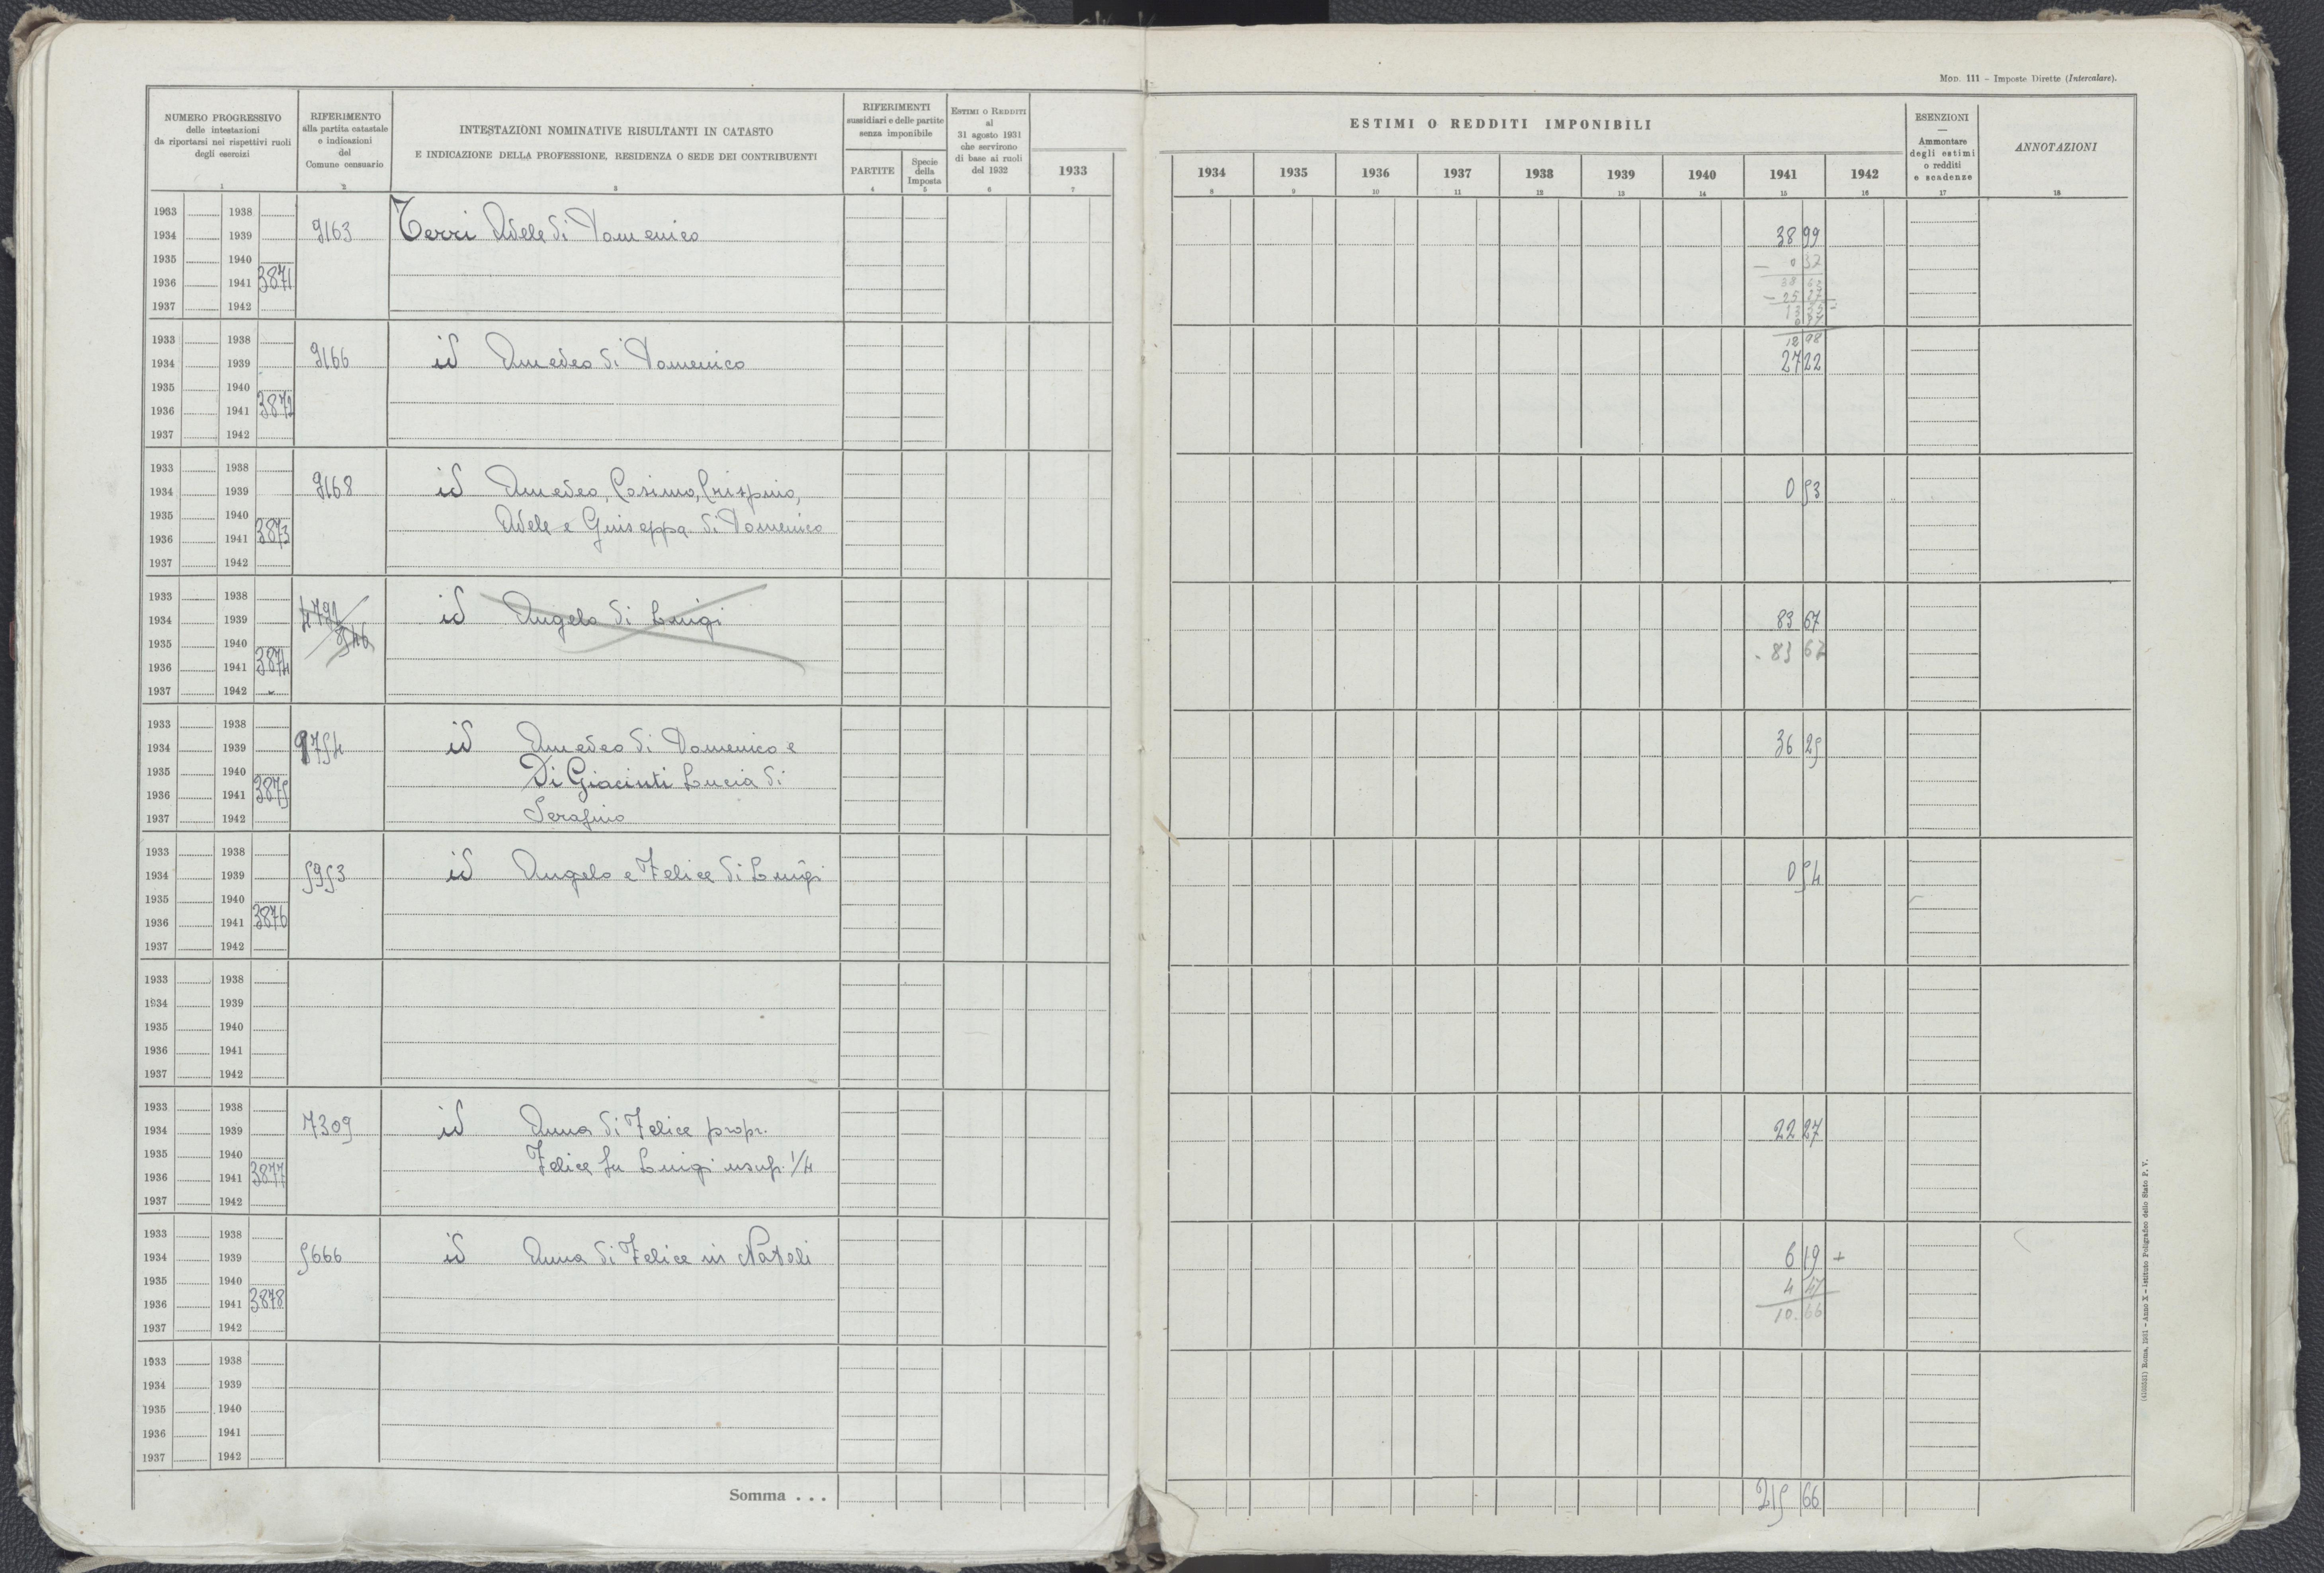 Mod. 111 - Imposte Dirette (Intercalare).
NUMERO PROGRESSIVO
delle intestazioni
da riportarsi nei rispettivi ruoli
degli esercizi
1
RIFERIMENTO
alla partita catastale
e indicazioni
del
Comune censuario
2
INTESTAZIONI NOMINATIVE RISULTANTI IN CATASTO
E INDICAZIONE DELLA PROFESSIONE, RESIDENZA O SEDE DEI CONTRIBUENTI
3
RIFERIMENTI
sussidiari e delle partite
senza imponibile
PARTITE
4
Specie
della
Imposta
5
Estimi o Redditi
al
31 agosto 1931
che servirono
di base ai ruoli
del 1932
6
1933
7
ESTIMI O REDDITI IMPONIBILI
1934 1935 1936 1937 1938 1939 1940 1941 1942
8 9 10 11 12 13 14 15 16
ESENZIONI
—
Ammontare
degli estimi
o redditi
e scadenze
17
ANNOTAZIONI
18
1933 1938
1934 1939 9163 Terri Adele di Domenico 38 99
1935 1940 - 0 37
1936 1941 3871
1937 1942
1933 1938 12 98
1934 1939 9166 id Amedeo di Domenico 27 22
1935 1940
1936 1941 3872
1937 1942
1933 1938
1934 1939 9168 id Amedeo, Cosimo, Crispino, 0 53
1935 1940 Adele e Giuseppa di Domenico
1936 1941 3873
1937 1942
1933 1938
1934 1939 id Angelo di Luigi 83 67
1935 1940 - 83 67
1936 1941 3874
1937 1942
1933 1938
1934 1939 9754 id Amedeo di Domenico e 36 25
1935 1940 Di Giacinti Lucia di
1936 1941 3875
1937 1942 Serafino
1933 1938
1934 1939 5953 id Angelo e Felice di Luigi 0 54
1935 1940
1936 1941 3876
1937 1942
1933 1938
1934 1939
1935 1940
1936 1941
1937 1942
1933 1938
1934 1939 7309 id Anna di Felice propr. 22 27
1935 1940 Felice fu Luigi usuf. 1/4
1936 1941 3877
1937 1942
1933 1938
1934 1939 5666 id Anna di Felice in Natali 6 19 +
1935 1940 4 47
1936 1941 3878 10.66
1937 1942
1933 1938
1934 1939
1935 1940
1936 1941
1937 1942
Somma . . . 215 66
Roma, 1931 - Anno X - Istituto Poligrafico dello Stato P. V.